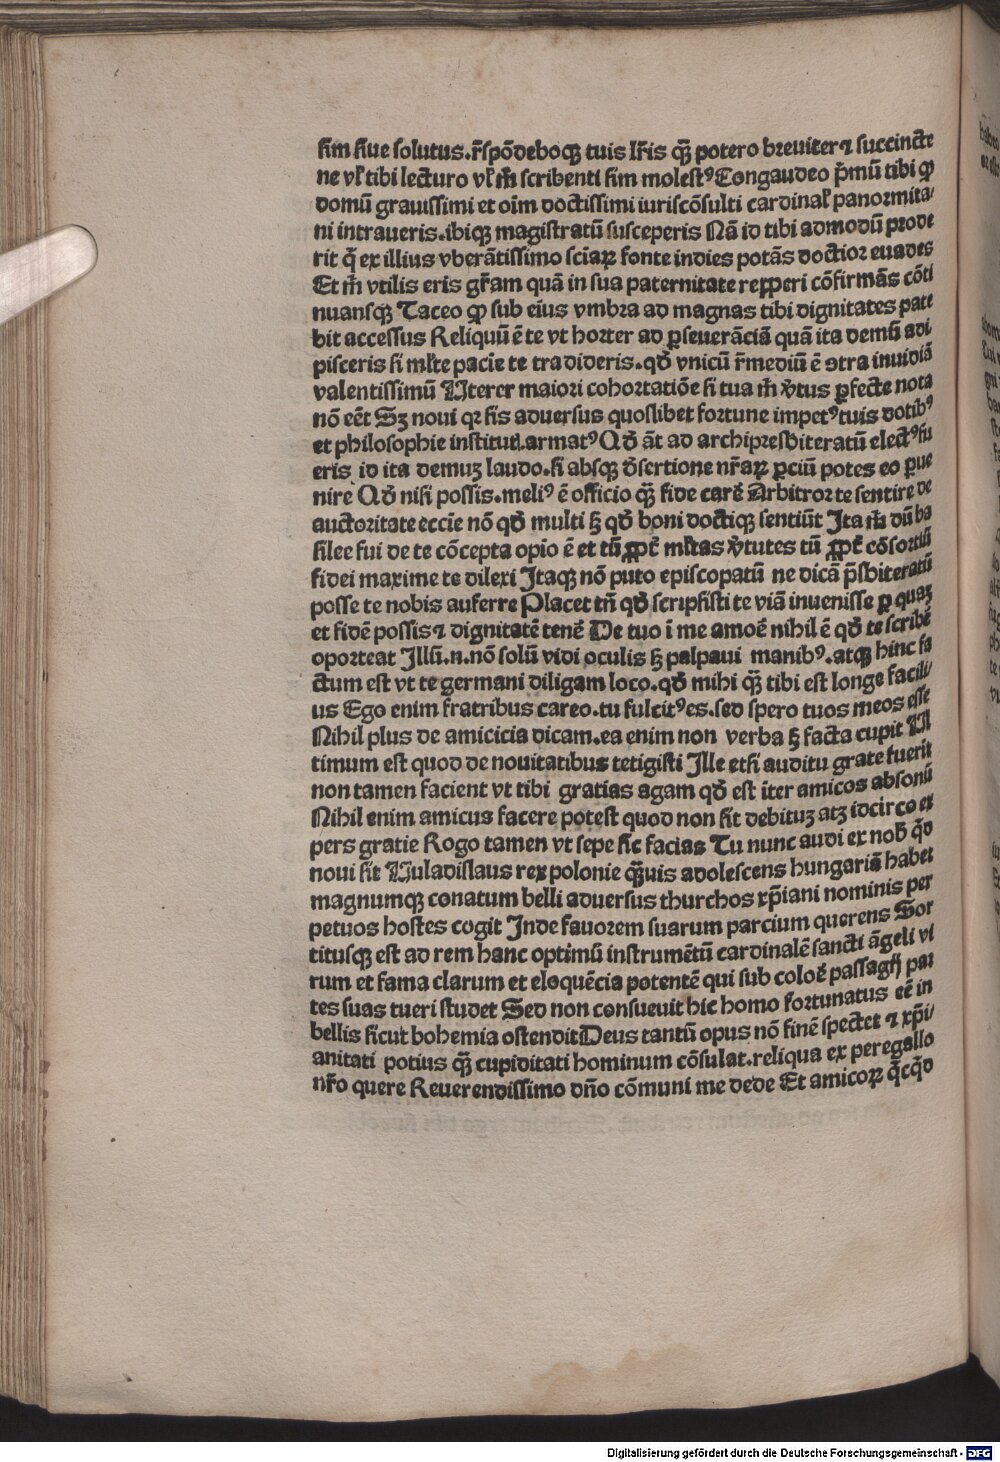 sim siue solutus.r̃spõdeboqꝫ tuis lr̃is qꝫ̃ potero breuiter ⁊ succincte
ne vl̕ tibi lecturo vl̕ m̃ scribenti sim molestꝰ Congaudeo p̃mũ tibi ꝙ
domũ grauissimi et oĩm doctissimi iuriscõsulti cardinal̕ panormita⸗
ni intraueris.ibiqꝫ magistratũ susceperis Nã id tibi admodũ prode
rit q̃ ex illius vberãtissimo sciaꝝ fonte indies potãs doctior euades
Et m̃ vtilis eris gr̃am quã in sua paternitate repperi cõfirmãs cõti
nuansqꝫ Taceo ꝙ sub eius vmbra ad magnas tibi dignitates pate
bit accessus Reliquũ ẽ te vt horter ad ꝑseuerãciã quã ita demũ adi
pisceris si ml̕te pacie te tradideris.qđ vnicũ r̃mediũ ẽ ꝯtra inuidiã
valentissimũ Vterer maiori cohortatiõe si tua m̃ v̓tus ꝑfecte nota
nõ eẽt Sꝫ noui qꝛ sis aduersus quoslibet fortune impetꝰ tuis dotibꝰ
et philosophie institut̕.armatꝰ Qđ ãt ad archipresbiteratũ electꝰ fu
eris id ita demuꝫ laudo.si absqꝫ d̓sertione nr̃aꝝ ꝑciũ potes eo ꝑue
nire Qđ nisi possis.meliꝰ ẽ officio qꝫ̃ fide carẽ Arbitror te sentire de
auctoritate eccie nõ qđ multi ſꝫ qđ boni doctiqꝫ sentiũt Ita m̃ dũ ba
silee fui de te cõcepta opio ẽ et tũ ꝓpt̓ ml̕tas v̓tutes tũ ꝓpt̓ cõsortiũ
fidei maxime te dilexi Itaqꝫ nõ puto episcopatũ ne dicã p̃sbiteratũ
posse te nobis auferre Placet tñ qđ scripsisti te viã inuenisse ꝑ quaꝫ
et fidẽ possis ⁊ dignitatẽ tenẽ De tuo ĩ me amoẽ nihil ẽ qđ te scribẽ
oporteat Illũ.n.nõ solũ vidi oculis ſꝫ palpaui manibꝰ.atqꝫ hinc fa
ctum est vt te germani diligam loco.qđ mihi qꝫ̃ tibi est longe facili⸗
us Ego enim fratribus careo.tu fulcitꝰ es.sed spero tuos meos esse
Nihil plus de amicicia dicam.ea enim non verba ſꝫ facta cupit Vl
timum est quod de nouitatibus tetigisti Ille etsi auditu grate fuerit
non tamen facient vt tibi gratias agam qđ est iter amicos absonũ
Nihil enim amicus facere potest quod non sit debituꝫ atꝫ idcirco ex
pers gratie Rogo tamen vt sepe sic facias Tu nunc audi ex nob̓ q̃d
noui sit Vuladislaus rex polonie qꝫ̃uis adolescens hungariã habet
magnumqꝫ conatum belli aduersus thurchos xp̃iani nominis per
petuos hostes cogit Inde fauorem suarum parcium querens Sor
titusqꝫ est ad rem hanc optimũ instrumẽtũ cardinalẽ sancti ãgeli vi
rum et fama clarum et eloquẽcia potentẽ qui sub coloẽ passagij par
tes suas tueri studet Sed non consueuit hic homo fortunatus eẽ in
bellis sicut bohemia ostendit Deus tantũ opus nõ finẽ spectet ⁊ xp̃i⸗
anitati potius qꝫ̃ cupiditati hominum cõsulat.reliqua ex peregallo
nr̃o quere Reuerendissimo dño cõmuni me dede Et amicoꝝ q̃cq̃d
Digitalisierung gefördert durch die Deutsche Forschungsgemeinschaft - DFG